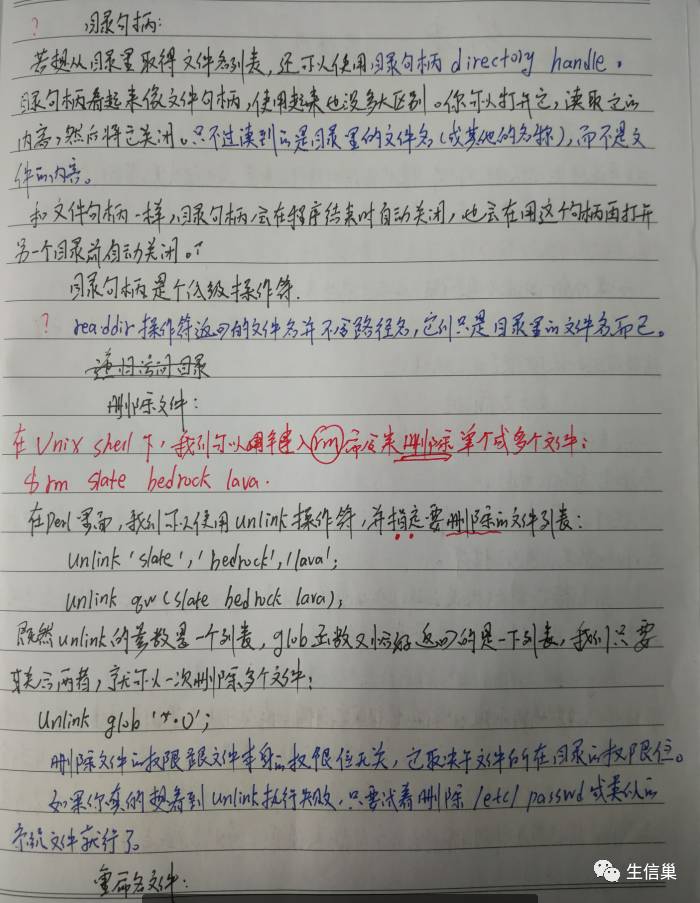 ? 目录句柄:
若想从目录里取得文件名列表,还可以使用目录句柄 directory handle。
目录句柄看起来像文件句柄,使用起来也没多大区别。你可以打开它,读取它的
内容,然后将它关闭。只不过读到的是目录里的文件名(或其他的名称),而不是文
件的内容。
和文件句柄一样,目录句柄会在程序结束时自动关闭,也会在用这个句柄再打开
另一个目录前自动关闭。
目录句柄是个低级操作符.
? readdir操作符返回的文件名并不含路径名,它们只是目录里的文件名而已。
递归访问目录
删除文件:
在 Unix shell 下,我们可以用键入rm命令来删除单个或多个文件:
$ rm slate bedrock lava.
在Perl里面,我们可以使用unlink操作符,并指定要删除的文件列表:
unlink 'slate','bedrock','lava';
unlink qw(slate bedrock lava);
既然unlink的参数是一个列表,glob函数又恰好返回的是一下列表,我们只要
结合两者,就可以一次删除多个文件:
unlink glob '*.o';
删除文件的权限跟文件本身的权限位无关,它取决于文件所在目录的权限位。
如果你真的想看到unlink执行失败,只要试着删除 /etc/passwd 或类似的
系统文件就行了。
重命名文件:
生信巢